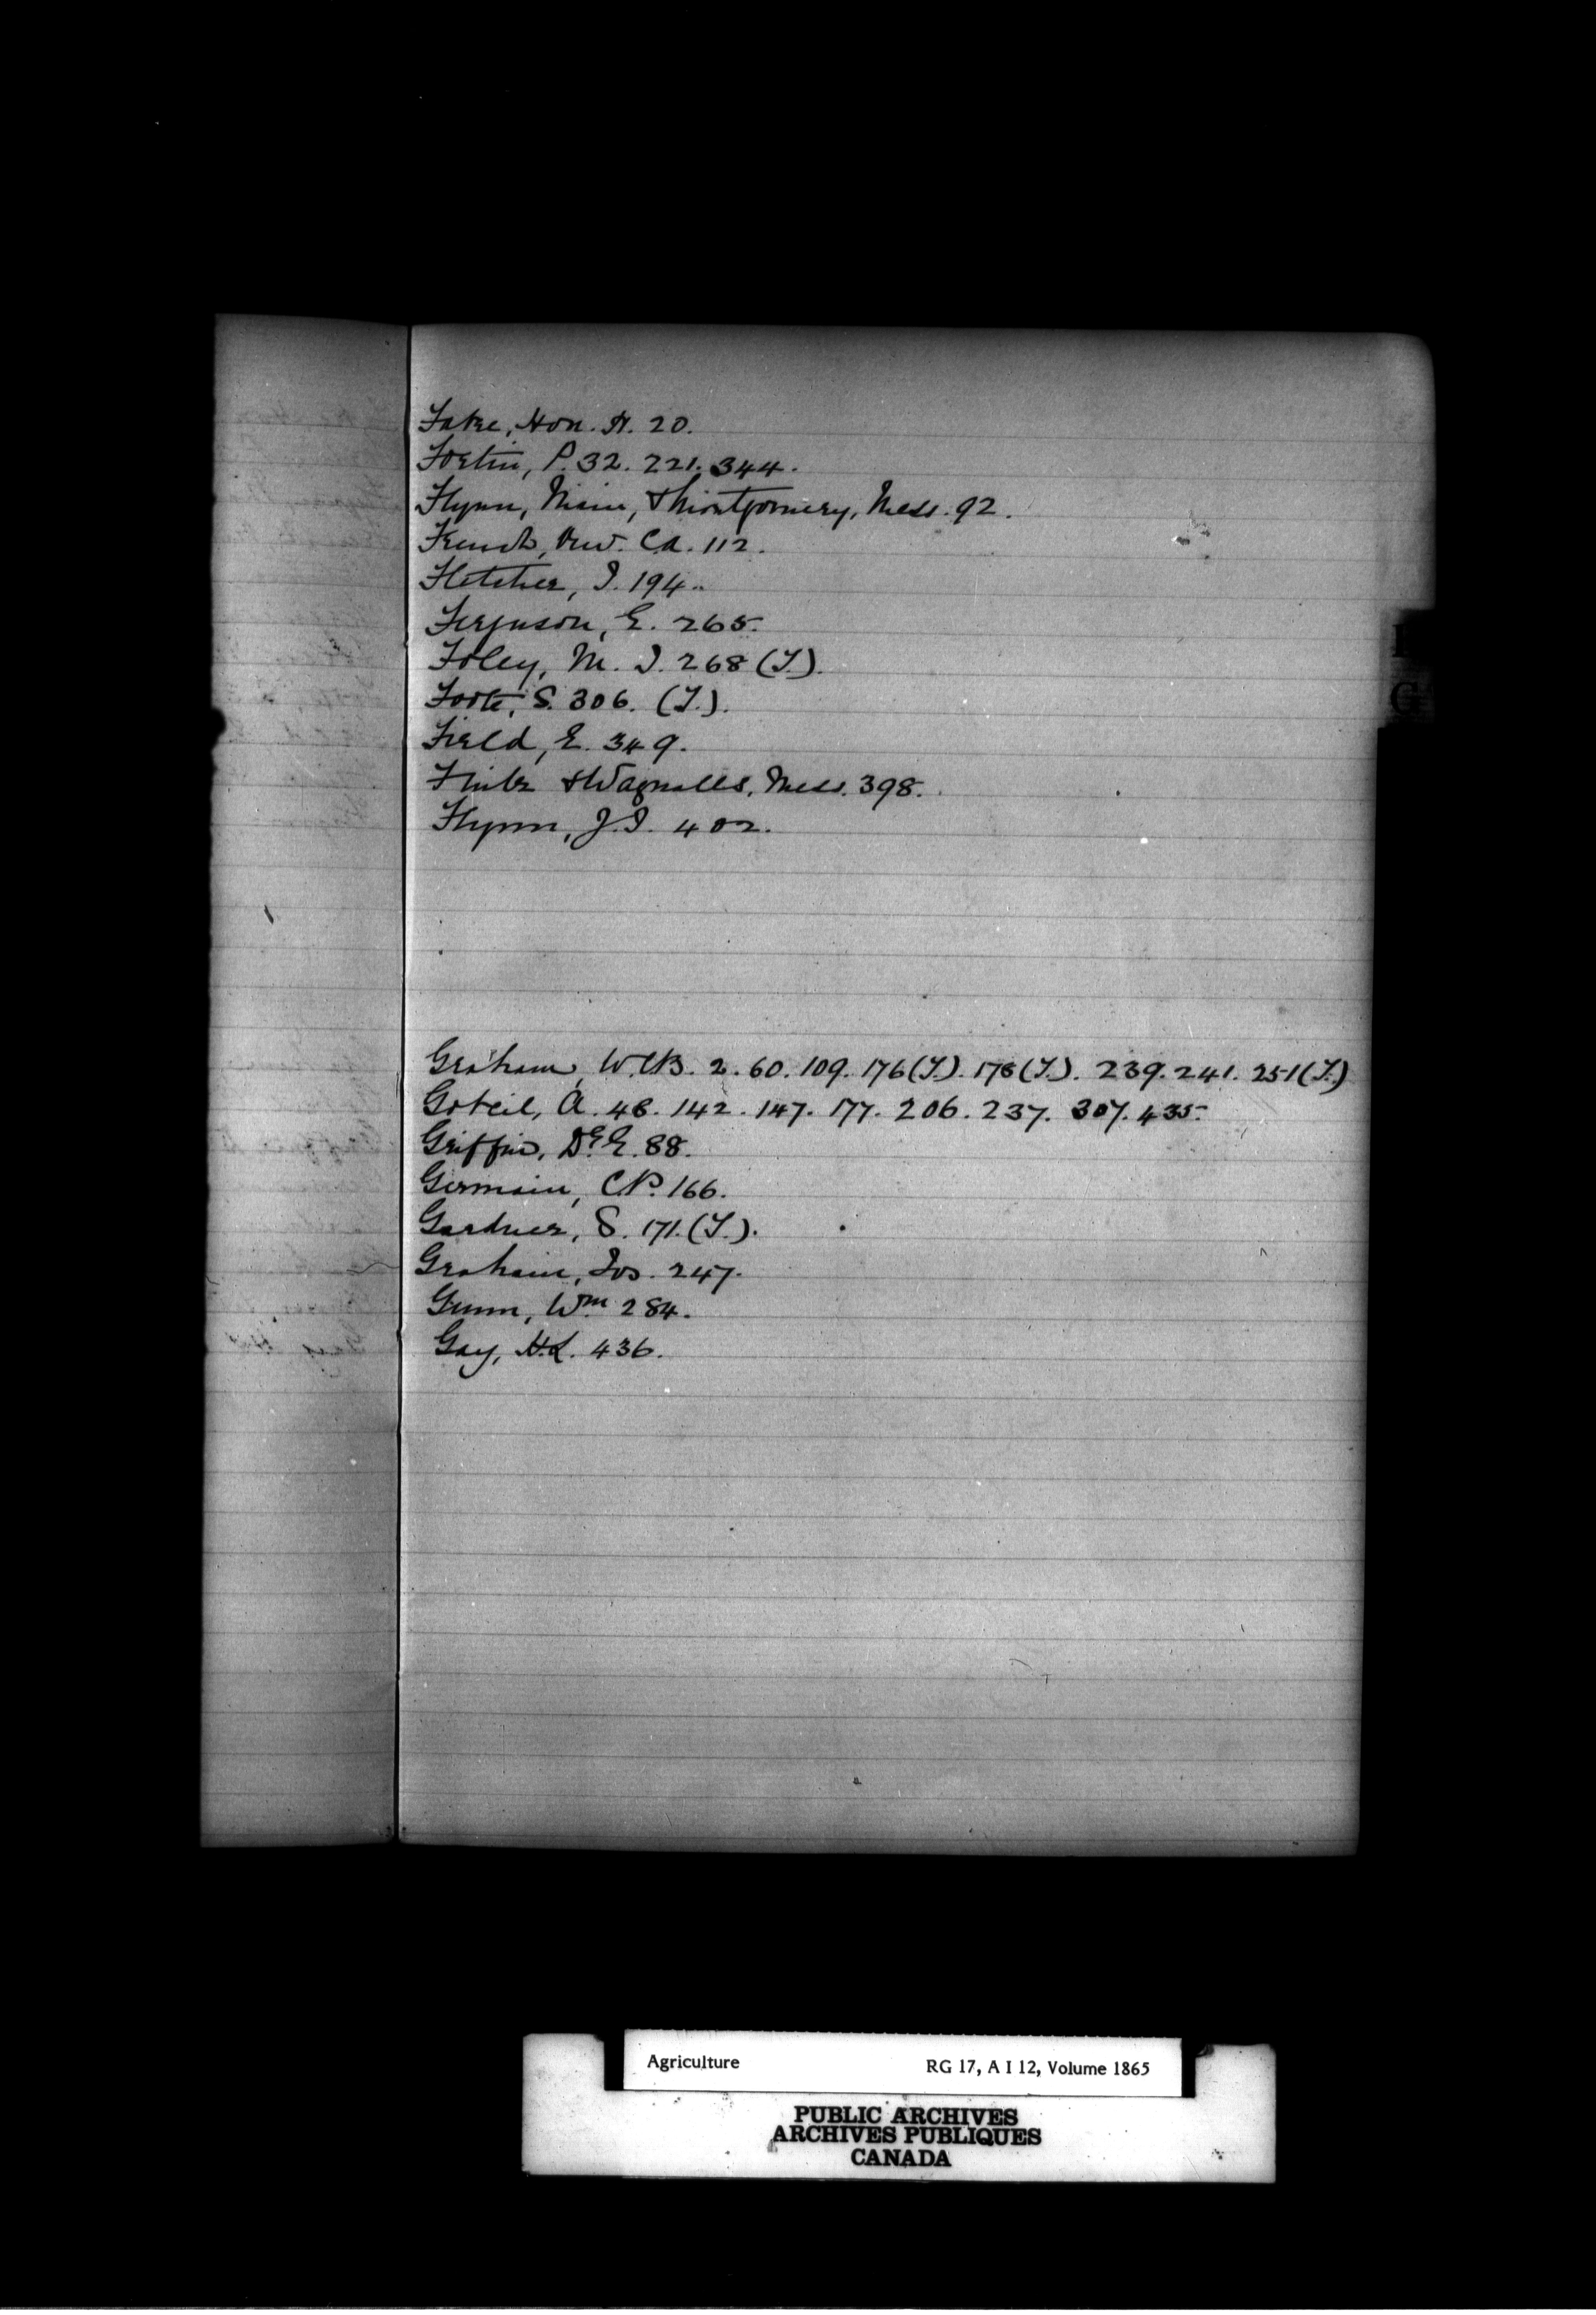 Fabre, Hon. H. 20.
Fortin, P. 32. 221. 344.
Flynn, & Montgomery, Mess. 92.
French, Rev. C.A. 112.
Fletcher, J. 194.
Ferguson, E. 265.
Foley, M. J. 268 (T.).
Foote, S. 306. (T.).
Field, E. 349.
Funk & Wagnalls, Mess. 398.
Flynn, J.J. 402.
Graham, W.C.B. 2. 60. 109. 176 (T.). 178 (T.). 239. 241. 251 (T.)
Gobeil, A. 48. 142. 147. 177. 206. 237. 307. 435.
Griffin, Dr. E. 88.
Germain, C.P. 166.
Gardner, S. 171. (T.).
Graham, Jos. 247.
Gunn, Wm 284.
Gay, H.L. 436.
G
Agriculture RG 17, A I 12, Volume 1865
PUBLIC ARCHIVES
ARCHIVES PUBLIQUES
CANADA